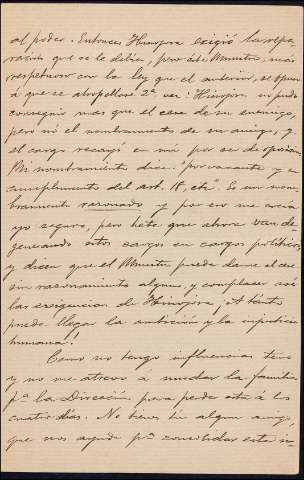 al poder. Entonces Hinojosa exigió la repa-
ración que se le debia, pero este Ministro, mas
respetuoso con la ley que el anterior, se opuso
á que se atropellare 2ª vez: Hinojosa no pudo
conseguir mas que el cese de su enemigo,
pero no el nombramiento de su amigo, y
el cargo recayó en mí por ser de oposición
Mi nombramiento dice: "por vacante y en
cumplimento del art. 18, etc". Es un nom-
bramiento razonado y por eso me creia
yo seguro, pero hete que ahora van de-
generando estos cargos en cargos politicos,
y dicen que el Ministro puede darme el cese
sin razonamiento alguno, y complacer así
las exigencias de Hinojosa ¡A tanto
puede llegar la ambición y la injusticia
humana!
Como no tengo influencias temo
y no me atrevo á mudar la familia
pª la Dirección para perder esta á los
cuatro dias. No tienes tú algun amigo,
que nos ayude pª consolidar esta in-